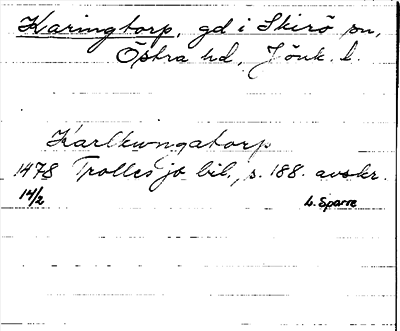 Karingtorp, gd i Skirö sn,
Östra hd, Jönk. l.
Karlkungatorp
1478 Trollesjö bil., s. 188. avskr.
14/2 L. Sparre